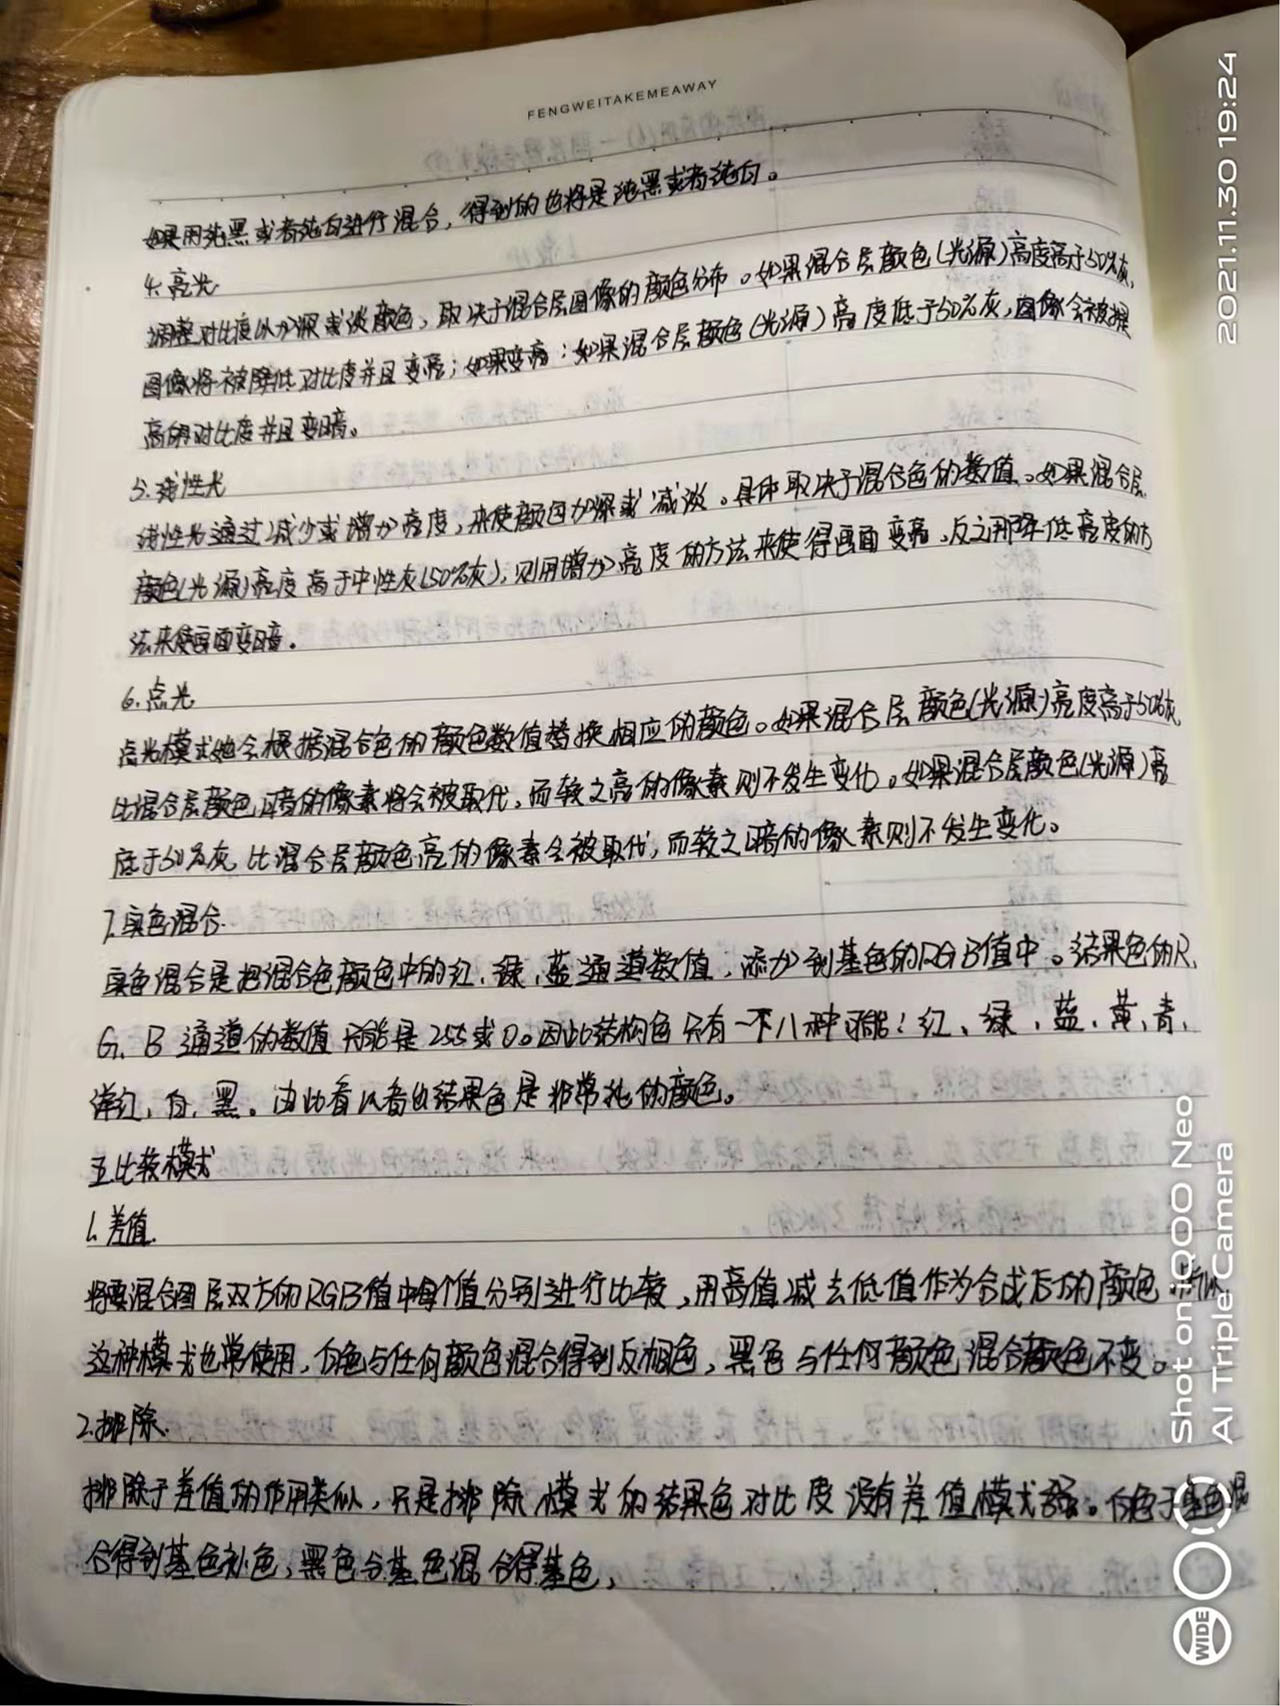 FENGWEITAKEMEAWAY
如果用纯黑或者纯白进行混合，得到的色将是纯黑或者纯白。
4.亮光
调整对比度以加深或淡颜色，取决于混合层图像的颜色分布。如果混合层颜色(光源)高度高于50%灰，
图像将被降低对比度并且变亮；如果变亮；如果混合层颜色(光源)高度低于50%灰，图像会被提
高的对比度并且变暗。
5.线性光
线性光通过减少或增加亮度，来使颜色加深或减淡。具体取决于混合色的数值。如果混合层
颜色(光源)亮度高于中性灰(50%灰)，则用增加亮度的方法来使得画面变亮，反之用降低亮度的方
法来使画面变暗。
6.点光
点光模式她会根据混合色的颜色数值替换相应的颜色。如果混合层颜色(光源)亮度高于50%灰
比混合层颜色暗的像素将会被取代，而较之亮的像素则不发生变化。如果混合层颜色(光源)亮
底于50%灰 比混合层颜色亮的像素会被取代，而较之暗的像素则不发生变化。
7.实色混合.
实色混合是把混合色颜色中的红、绿、蓝通道数值，添加到基色的RGB值中。结果色的R、
G、B 通道的数值只能是255或0。因此结构色只有一下八种可能：红、绿、蓝、黄、青、
洋红、白、黑。由此看以看出结果色是非常纯的颜色。
五.比较模式
1.差值.
将要混合图层双方的RGB值中每个值分别进行比较，用高值减去低值作为合成后的颜色
这种模式也常使用，白色与任何颜色混合得到反相色，黑色与任何颜色混合颜色不变。
2.排除.
排除于差值的作用类似，只是排除模式的结果色对比度没有差值模式强。白色于基色混
合得到基色补色，黑色与基色混合得基色，
2021.11.30 19:24
Shot on iQOO Neo
AI Triple Camera
WIDE